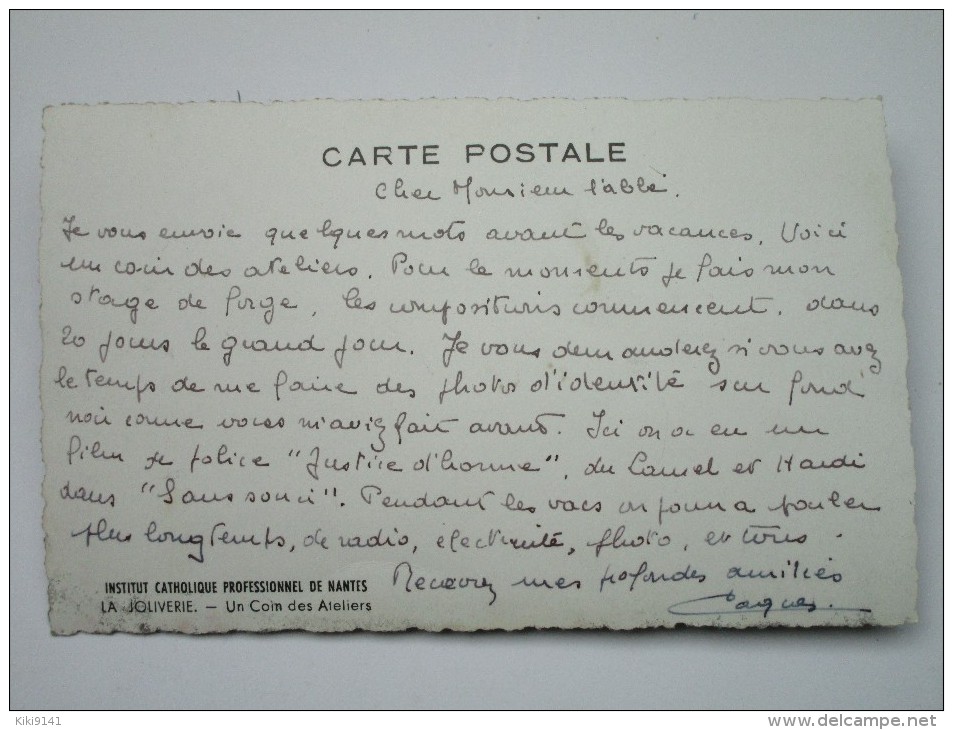 CARTE POSTALE
Cher Monsieur l'abbé.
Je vous envoie quelques mots avant les vacances. Voici
un coin des ateliers. Pour le moments je fais mon
stage de forge, les compositions commencent. dans
20 jours le grand jour. Je vous demanderez si vous avez
le temps de me faire des photos d'identité sur fond
noir comme vous m'aviez fait avant. Ici on a eu un
film de police "Justice d'homme", du Laurel et Hardi
dans "Sans souci". Pendant les vacs on pourra parler
plus longtemps, de radio, électricité, photo, et
Recevez mes profondes amitiés
Jacques
INSTITUT CATHOLIQUE PROFESSIONNEL DE NANTES
LA JOLIVERIE. — Un Coin des Ateliers
Kiki9141
delcampe.net